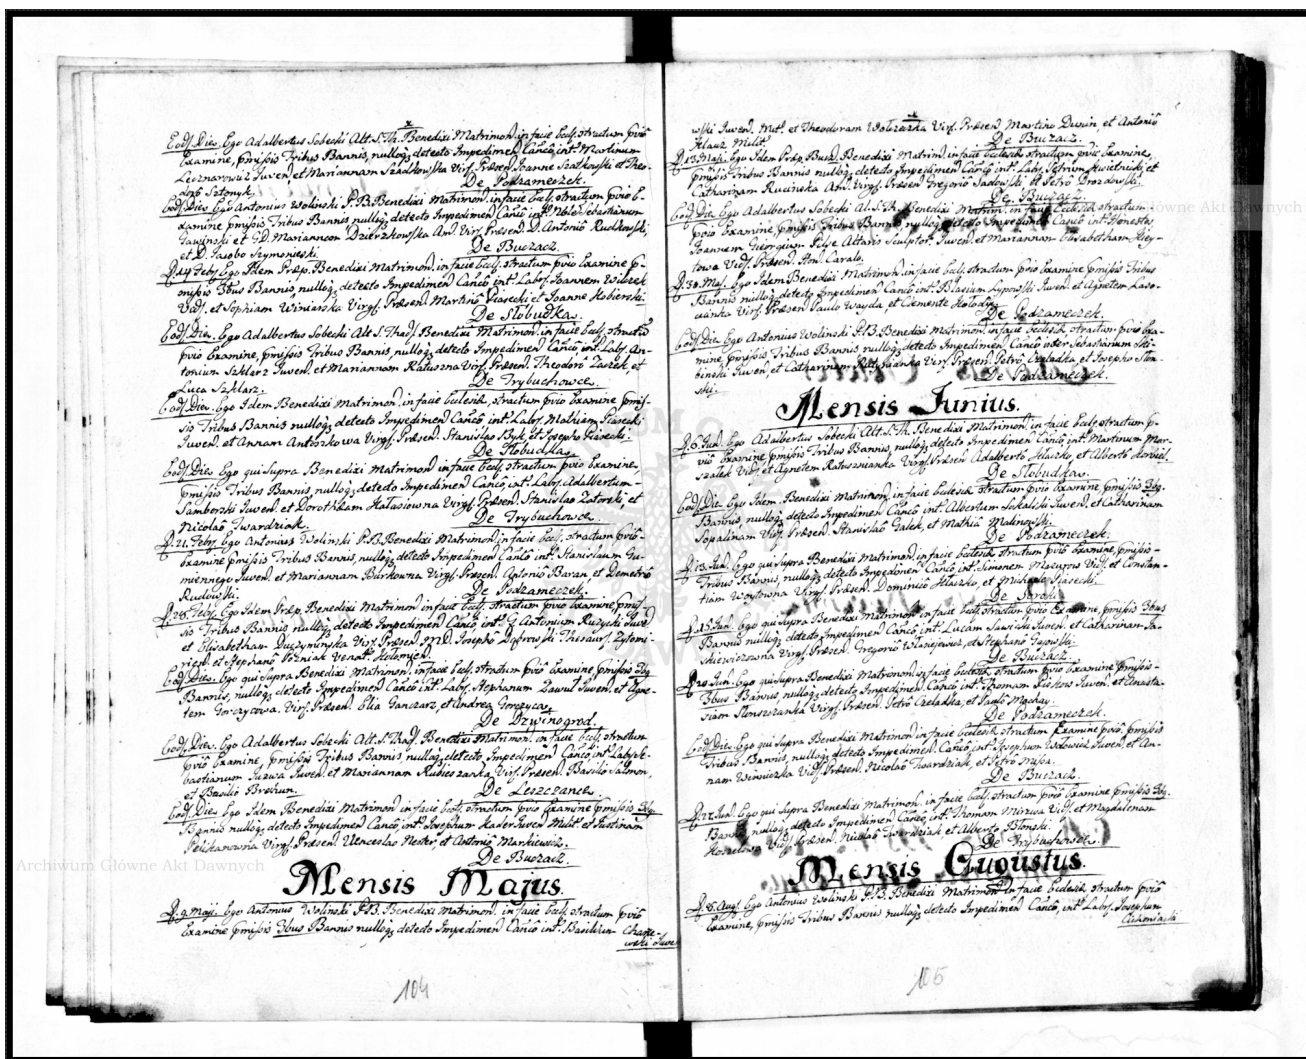 Eod. Die. Ego Adalbertus Sobecki Alt. S. Th. Benedixi Matrimon. in facie Eccl. stractum pvio
Examine, pmissis Tribus Bannis, nulloq; detecto Impedimen Canco int. Martinum
Juven. et Mariannam Szadkowska Virg. Præsen. Joanne Szatkowski et Theo-
doro
De Podzameczek.
Eod. Die. Ego Antonius Wolinski P.B. Benedixi Matrimon. in facie Eccl. stractum pvio E-
xamine pmissis Tribus Bannis, nulloq; detecto Impedimen Canco int. Sebastianum
et G.D. Mariannam Dzierzkowska Virg. Præsen. D. Antonio Rudkowski
et D. Jacobo
De Buczacz.
D. 14. Feby. Ego Idem Præp. Benedixi Matrimon. in facie Eccl. stractum pvio Examine p-
missis 3bus Bannis, nulloq; detecto Impedimen Canco int. Labs. Joannem Wilczek
Vid. et Sophiam Winiarska Virg. Præsen. Martino Piasecki et Joanne Kobierski.
De Slobudka.
Eod. Die. Ego Adalbertus Sobecki Alt. S. Thad. Benedixi Matrimon. in facie Eccl. stractum
pvio Examine, pmissis Tribus Bannis, nulloq; detecto Impedimen Canco int. Labs. An-
tonium Szklarz Juven. et Mariannam Ratuszna Virg. Præsen. Theodoro Zaszek, et
Luca Szklarz.
De Trybuchowce.
Eod. Die. Ego Idem Benedixi Matrimon. in facie Ecclesiæ, stractum pvio Examine pmis-
sis Tribus Bannis nulloq; detecto Impedimen Canco int. Labs. Mathiam Piasecki
Juven. et Annam Antorkowa Virg. Præsen. Stanislao Byk, et Josepho Piasecki.
De Slobudka.
Eod. Die. Ego qui Supra Benedixi Matrimon. in facie Eccl. stractum pvio Examine,
pmissis Tribus Bannis, nulloq; detecto Impedimen Canco int. Labs. Adalbertum
Samborski Juven. et Dorotheam Halasiowna Virg. Præsen. Stanislao Zatorski, et
Nicolao Twardziak.
De Trybuchowce.
D. 21. Feby. Ego Antonius Wolinski P.B. Benedixi Matrimon. in facie Eccl. stractum pvio
Examine pmissis Tribus Bannis, nulloq; detecto Impedimen Canco int. Stanislaum Gu-
miennego Juven. et Mariannam Burkowna Virg. Præsen. Antonio Baran et Demetrio
Rudowski.
De Podzameczek.
D. 26. Feby. Ego Idem Præp. Benedixi Matrimon. in facie Eccl. stractum pvio Examine, pmis-
sis Tribus Bannis, nulloq; detecto Impedimen Canco int. G. Antonium Ruzycki Juve.
et Elisabetham Duczyminska Virg. Præsen. M.D. Josepho Dąbrowski Thesaur. Zytomi-
rien. et Stephano Pozniak Venat. Kolomien.
Eod. Die. Ego qui Supra Benedixi Matrimon. in facie Eccl. stractum pvio Examine pmissis 3bg
Bannis, nulloq; detecto Impedimen Canco int. Labs. Stephanum Juven. et Agne-
tem Gorczycowa. Virg. Præsen. Elia Ganczarz, et Andrea Gorczyca.
De Dzwinogrod.
Eod. Die. Ego Adalbertus Sobecki Alt. S. Thad. Benedixi Matrimon. in facie Eccl. stractum
pvio Examine, pmissis Tribus Bannis, nulloq; detecto Impedimen Canco int. Labs. Se-
bastianum Juven. et Mariannam Virg. Præsen. Basilio Salmon,
et Basilio
De Leszczance.
Eod. Die. Ego Idem Benedixi Matrimon. in facie Eccl. stractum pvio Examine pmissis 3bg
Bannis nulloq; detecto Impedimen Canco int. Josephum Kader Juven. Milit. et Justinam
Pelikanowna Virg. Præsen. Venceslao Nester, et Antonio Markiewicz.
De Buczacz.
Mensis Majus.
D. 9. Maji. Ego Antonius Wolinski P.B. Benedixi Matrimon. in facie Eccl. stractum pvio
Examine pmissis 3bus Bannis nulloq; detecto Impedimen Canco int. Basilium
104
wski Juven. Milt. et Theodoram Virg. Præsen. Martino Dunin, et Antonio
Milit.
De Buczacz.
D. 13. Maji. Ego Idem Præp. Bucz. Benedixi Matrim. in facie Ecclesiæ stractum pvio Examine,
pmissis Tribus Bannis, nulloq; detecto Impedimen Canco int. Labs. Petrum Kwietnicki, et
Catharinam Rucinska Virg. Præsen. Gregorio Sadowski et Petro Drozdowski.
De Buczacz.
Eod. Die. Ego Adalbertus Sobecki Al. S. Th. Benedixi Matrim. in facie Ecclesiæ stractum
pvio Examine, pmissis Tribus Bannis, nulloq; detecto Impedimen Canco int. Honestu
Joannem Georgium Polye Altaris Sculptor. Juven. et Mariannam Elisabetham
Vid. Præsen.
D. 30. Maj. Ego Idem Benedixi Matrimon. in facie Eccl. stractum pvio Examine pmissis Tribus
Bannis nulloq; detecto Impedimen Canco int. Blasium Lypowski Juven. et Agnetem
Virg. Præsen. Paulo Wayda, et Clemente
De Podzameczek.
Eod. Die. Ego Antonius Wolinski P.B. Benedixi Matrimon. in facie Ecclesiæ stractum pvio Exa-
mine, pmissis Tribus Bannis nulloq; detecto Impedimen Canco inter Sebastianum
Juven. et Catharinam Virg. Præsen. Petro Czeladka, et Josepho Slom-
ski.
De Podzameczek.
Mensis Junius.
D. 6. Jun. Ego Adalbertus Sobecki Alt. S. Th. Benedixi Matrimon. in facie Eccl. stractum p-
vio Examine pmissis Tribus Bannis, nulloq; detecto Impedimen Canco int. Martinum Mar-
szalek Vid. et Agnetem Ratusznianka Virg. Præsen. Adalberto Hlaczko, et Alberto
De Slobudka.
Eod. Die. Ego Idem Benedixi Matrimon. in facie Ecclesiæ stractum pvio Examine pmissis 3bg
Bannis, nulloq; detecto Impedimen Canco int. Albertum Sokalski Juven. et Catharinam
Virg. Præsen. Stanislao Galek, et Mathia Malinowski.
De Podzameczek.
D. 13. Jun. Ego qui Supra Benedixi Matrimon. in facie Ecclesiæ stractum pvio Examine, pmissis
Tribus Bannis, nulloq; detecto Impedimen Canco int. Simonem Mazuros Vid. et Constan-
tiam Woytowna Virg. Præsen. Dominico Hlaczko, et Michaele Piasecki.
De Soroki.
D. 15. Jun. Ego qui Supra Benedixi Matrimon. in facie Eccl. stractum pvio Examine, pmissis 3bus
Bannis nulloq; detecto Impedimen Canco int. Lucam Sawicki Juven. et Catharinam Ja-
Virg. Præsen. Gregorio et Stephano
De Buczacz.
D. 20. Jun. Ego qui Supra Benedixi Matrimon. in facie Ecclesiæ stractum pvio Examine pmissis
3bus Bannis, nulloq; detecto Impedimen Canco int. Thomam Juven. et Anasta-
siam Virg. Præsen. Petro Czeladka, et Paulo
De Podzameczek.
Eod. Die. Ego qui Supra Benedixi Matrimon. in facie Ecclesiæ stractum Examine pvio, pmissis
Tribus Bannis, nulloq; detecto Impedimen. Canco. int. Josephum Juven. et An-
nam Winnicka Vid. Præsen. Nicolao Twardziak, et Petro Misza.
De Buczacz.
D. 27. Jun. Ego qui Supra Benedixi Matrimon. in facie Eccl. stractum pvio Examine pmissis 3bg.
Bannis, nulloq; detecto Impedimen Canco int. Thomam Vid. et Magdalenam
Vid. Præsen. Nicolao Twerdziak et Alberto Blonski.
De Trybuchowce.
Mensis Augustus.
D. 8. Aug. Ego Antonius Wolinski P.B. Benedixi Matrimon. in facie Ecclesiæ stractum pvio
Examine, pmissis Tribus Bannis nulloq; detecto Impedimen Canco, int. Labs. Josephum
105
Archiwum Główne Akt Dawnych